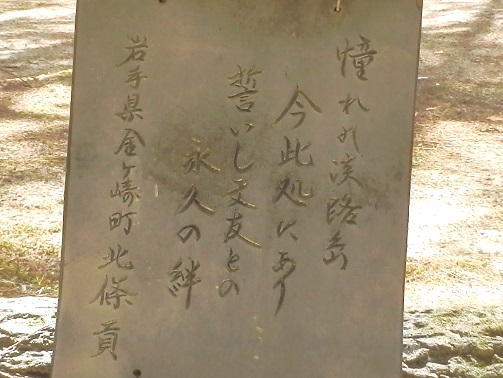 憧れの淡路島
今此処にあり
誓いし文友との
永久の絆
岩手県金ヶ崎町 北條 貢